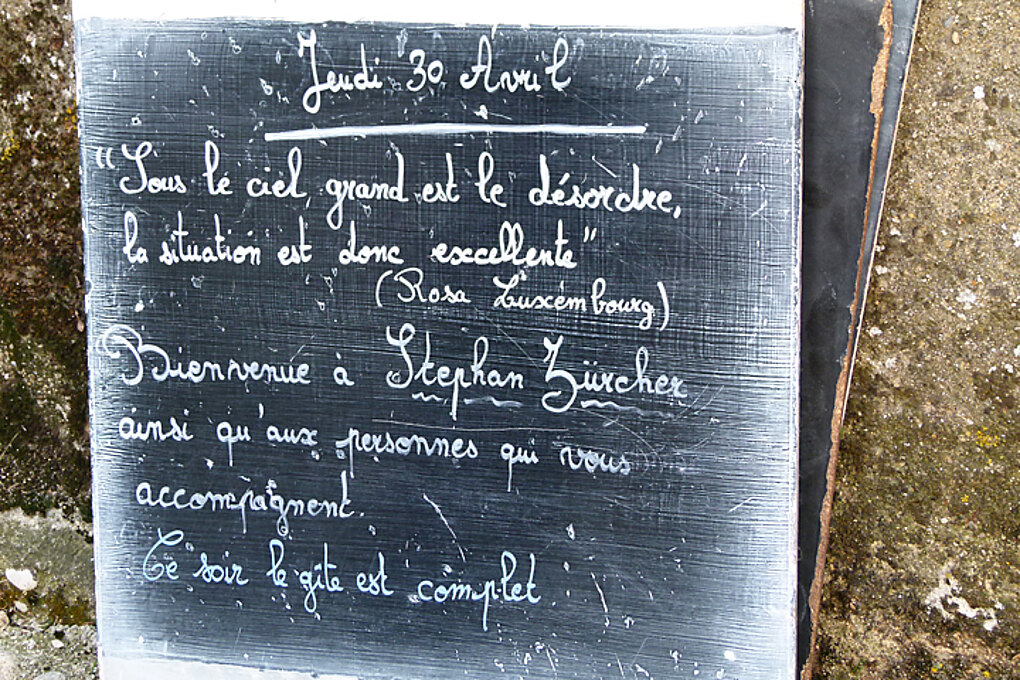 Jeudi 30 Avril
"Sous le ciel grand est le désordre,
la situation est donc excellente"
(Rosa Luxembourg)
Bienvenue à Stephan Zürcher
ainsi qu'aux personnes qui vous
accompagnent.
Ce soir le gîte est complet.